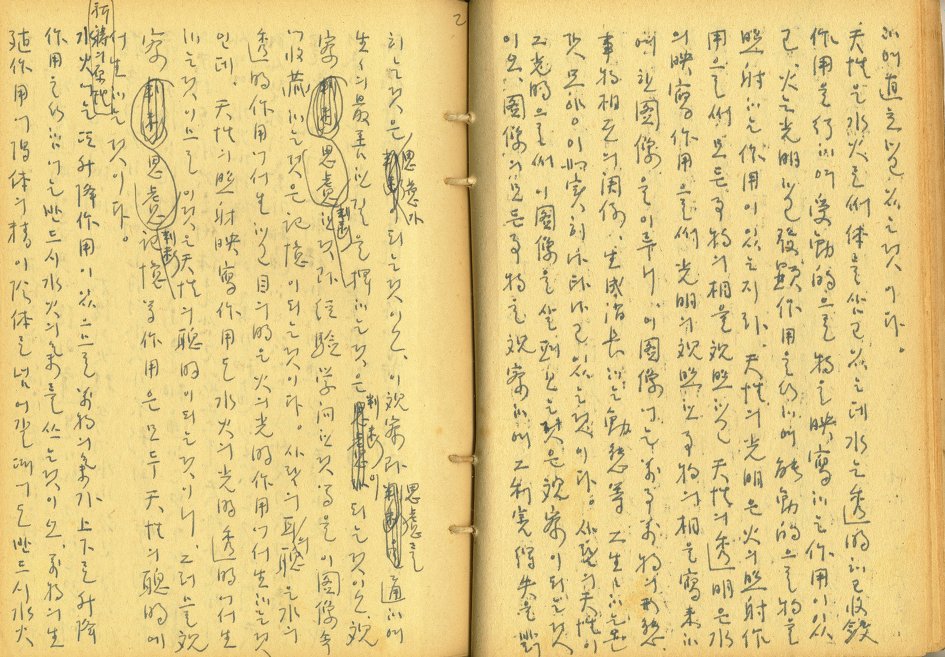 하며 道를 알고 있는 것이다.
天性은 水火를 体를 삼고 있는데 水는 透明하고 收斂
作用을 行하여 受動的으로 物을 映寫하는 作用이 있
고, 火는 光明하고 發顯作用을 行하여 能動的으로 物을
照射하는 作用이 있는지라. 天性의 光明은 火의 照射作
用으로써 모든 事物의 相을 觀照하고 天性의 透明은 水
의 映寫作用으로써 光明의 觀照한 事物의 相을 寫來하
여 圖像을 이루니 이 圖像에는 萬事萬物의 形態
事物相互의 関係, 生成消長하는 動態 等
것 모양이 如実히 나타나고 있는 것이다. 사람의 天性이
光明으로써 이 圖像을 살펴보는 것은 觀察이 되는 것
이오, 圖像의 모든 事物을 觀察하여 그 利害得失을
하는 것은 思慮가 되는 것이오, 이 觀察과 思慮를 通하여
生의 最善한 길을 擇하는 것은 判断이 되는 것이오, 觀
察 思慮 判断한 것과 経驗 学问한 것 等을 이 圖像 속
에 收藏하는 것은 記憶이 되는 것이다. 사람의 耳의 聰은 水의
透明 作用에서 生하고 目의 明은 火의 光明 作用에서 生하는 것
인데, 天性의 照射 映寫作用도 水火의 光明 透明에서 生
하는 것이므로 이것은 天性의 聰明이 되는 것이니, 그러므로 觀
察 思慮 判断 記憶 等 作用은 모두 天性의 聰明에
서 生하는 것이다.
祈禱의 原理
水火에는 升降作用이 있으므로 萬物의 氣가 上下로 升降
作用을 行함에는 반드시 水火의 氣를 쓰는 것이오, 萬物의 生
殖作用에 陽体의 精이 陰体로 넘어갈 때에도 반드시 水火